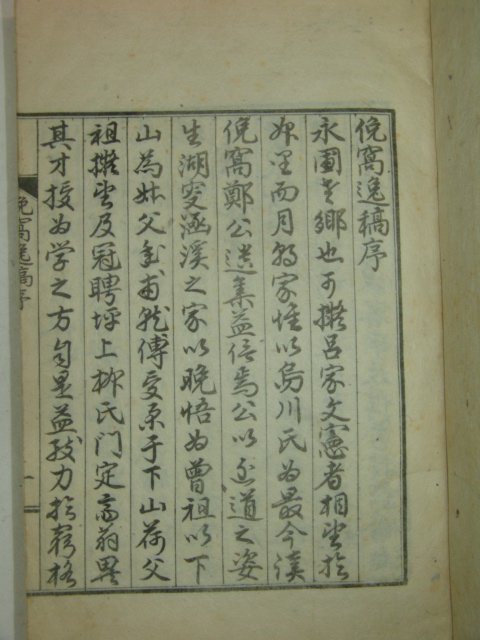 俛窩逸稿序
永 鄉也可擬呂家文憲者相望於
里而月朔家惟以烏川氏為最今讀
俛窩鄭公遺集益信焉公以近道之姿
生湖叟涵溪之家以晚悟為曾祖以下
山為 父年甫就傅受 于下山荷父
祖擬望及冠聘坪上柳氏門定齋翁異
其才授为学之方自是益致力於窮格
俛窩逸稿序
一